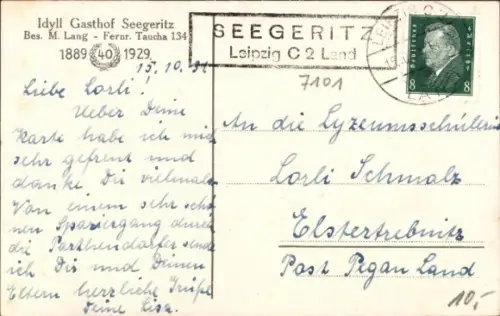 Idyll Gasthof Seegeritz
Bes. M. Lang - Fernr. Taucha 134
1889 40 1929
15.10.31
Liebe Lorli!
Ueber Deine
Karte habe ich mich
sehr gefreut und
danke Dir vielmals.
Von einem sehr schö-
nen Spaziergang durch
die Parthendörfer sende
ich Dir und Deinen
Eltern herzliche Grüße
Deine Lisa.
SEEGERITZ
Leipzig C 2 Land
7101
Deutsches Reich
8 8
An die Lyzeumsschülerin
Lorli Schmalz
Elstertrebnitz
Post Pegau Land
10,-